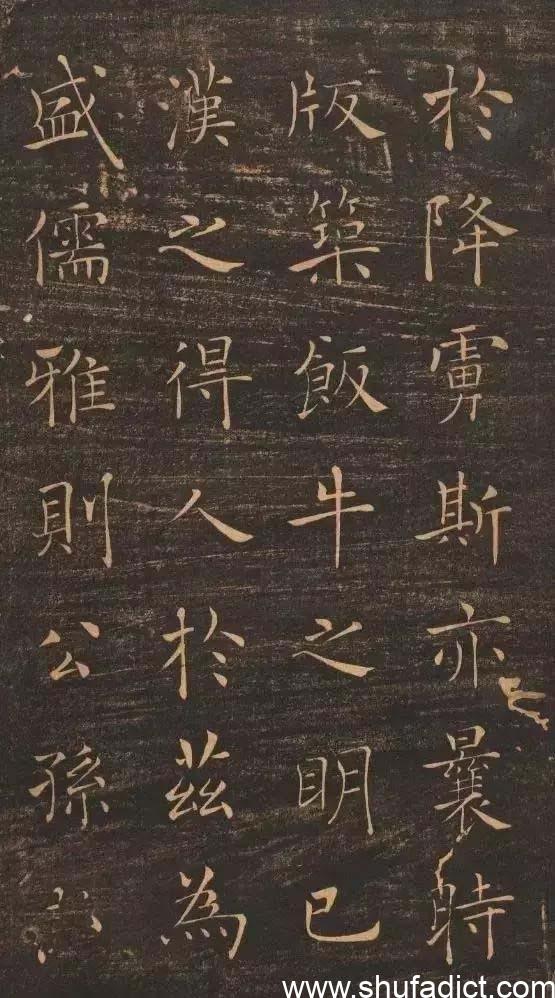 於降虜斯亦曩時
版築飯牛之明已
漢之得人於茲為
盛儒雅則公孫
www.shufadict.com